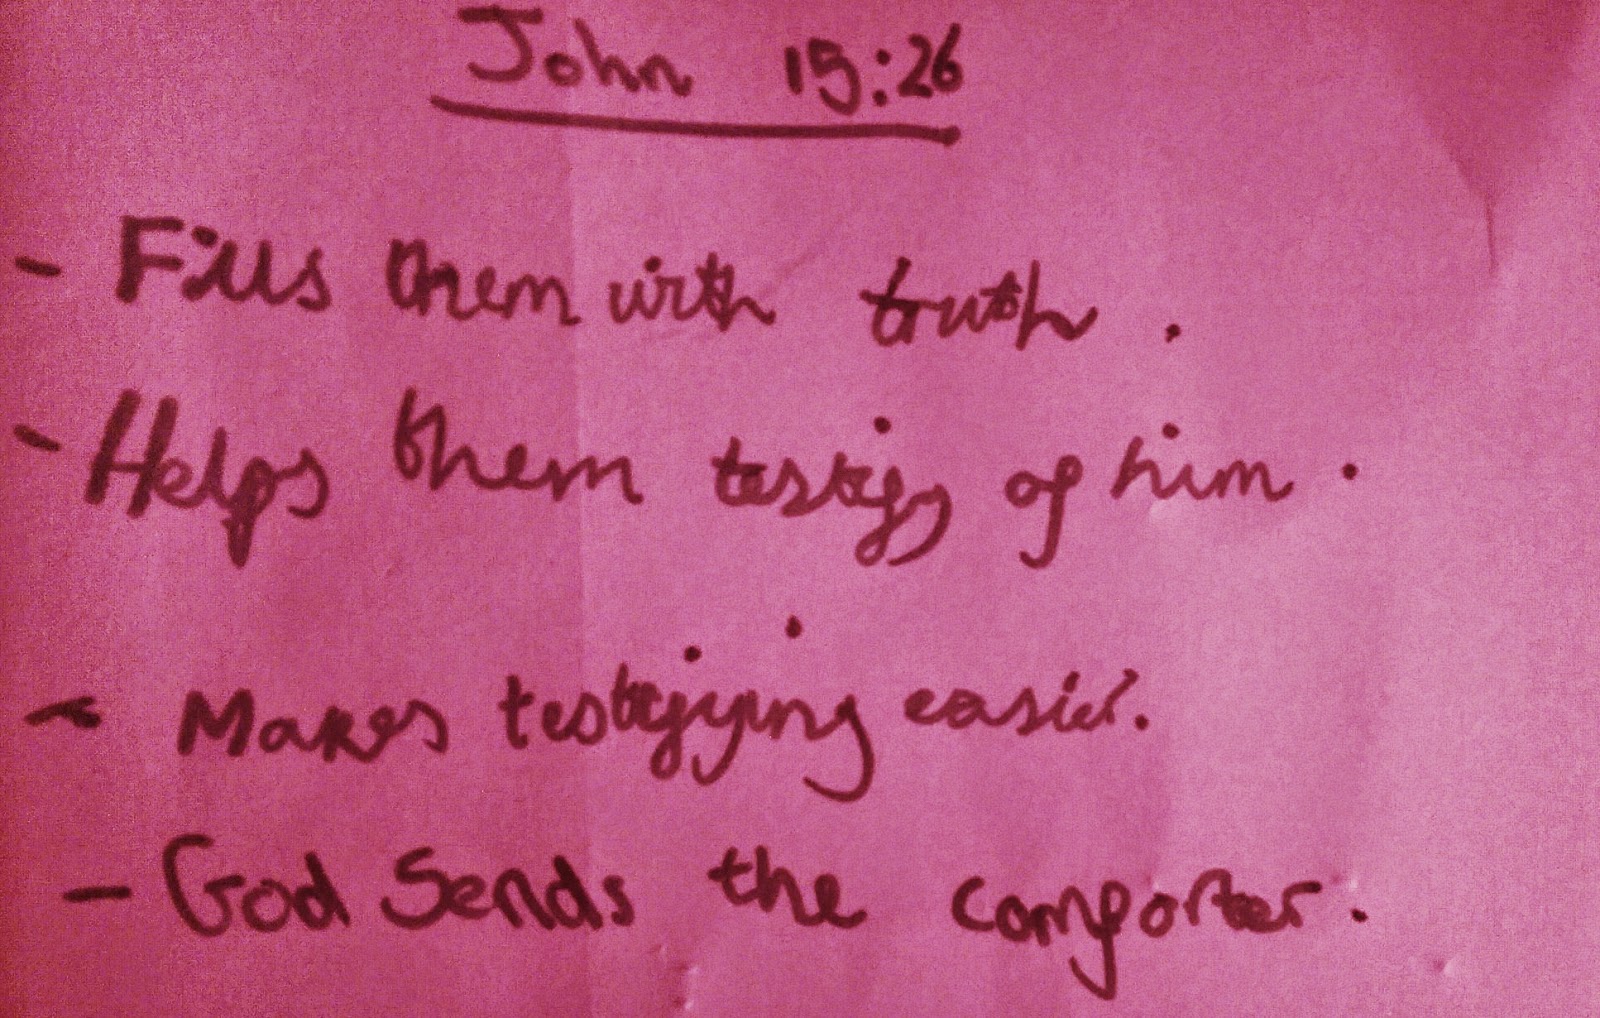 John 15:26
- Fills them with truth.
- Helps them testify of him.
- Makes testifying easier.
- God Sends the comforter.